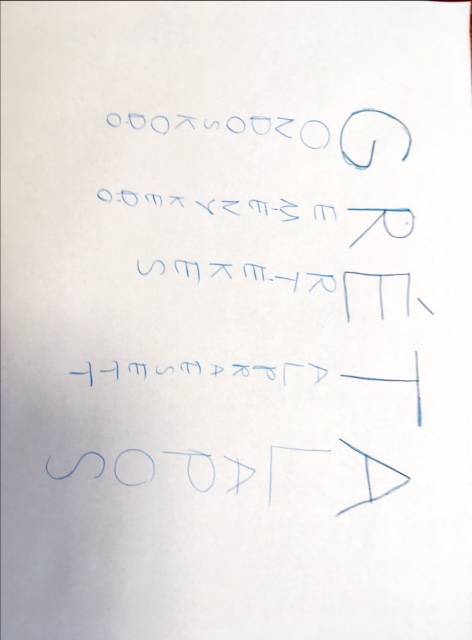 GONDOSKODÓ
REMÉNYKEDŐ
ÉRTÉKES
TALPRAESETT
ALAPOS